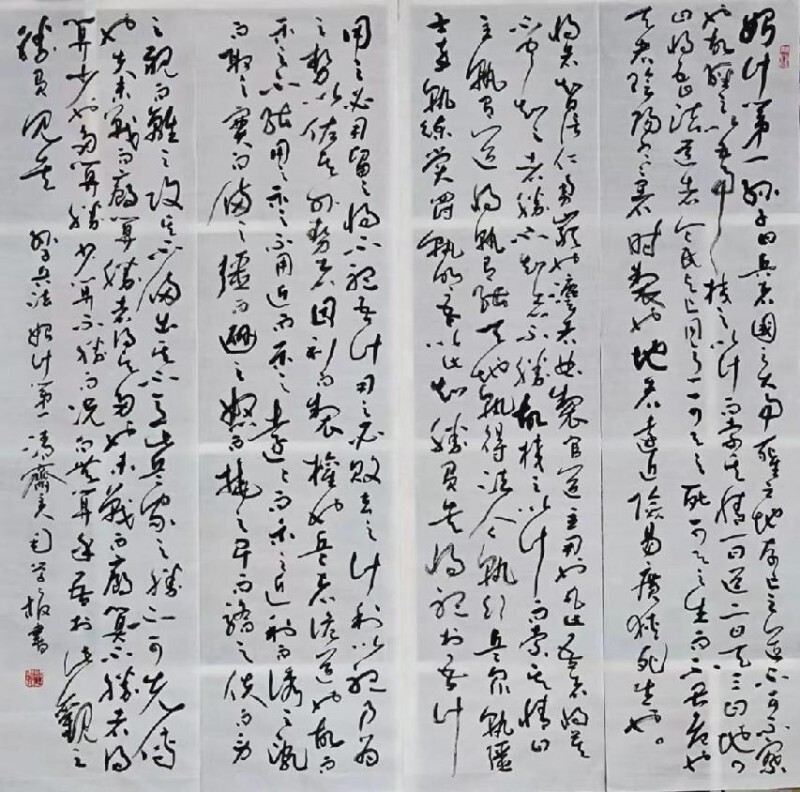 始计第一孙子曰兵者國之大事死生之地存亡之道不可不察
也故經之以五事校之以计而索其情一曰道二曰天三曰地四
曰将五曰法道者令民与上同意可与之死可与之生而不畏危也
天者陰陽寒暑时製也地者遠近險易廣狹死生也
将者智信仁勇嚴也法者曲製官道主用也凡此五者将莫
不聞知之者勝不知者不勝故校之以计而索其情曰
主孰有道将孰有能天地孰得法令孰行兵眾孰彊
士卒孰練賞罰孰明吾以此知勝負矣将聽吾计
用之必勝留之将不聽吾计用之必敗去之计利以聽乃為
之勢以佐其外勢者因利而製權也兵者詭道也故能而
示之不能用而示之不用近而示之遠遠而示之近利而誘之亂
而取之實而備之彊而避之怒而撓之卑而驕之佚而劳
之親而離之攻其不備出其不意此兵家之勝不可先傳
也夫未戰而廟算勝者得算多也未戰而廟算不勝者得
算少也多算勝少算不勝而况而無算乎吾於此觀之
勝負見矣 孙子兵法始计第一 馮齋夫 書